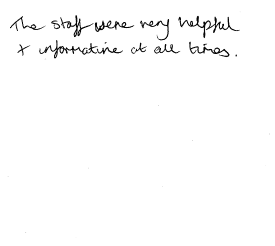 The staff were very helpful
+ informative at all times.